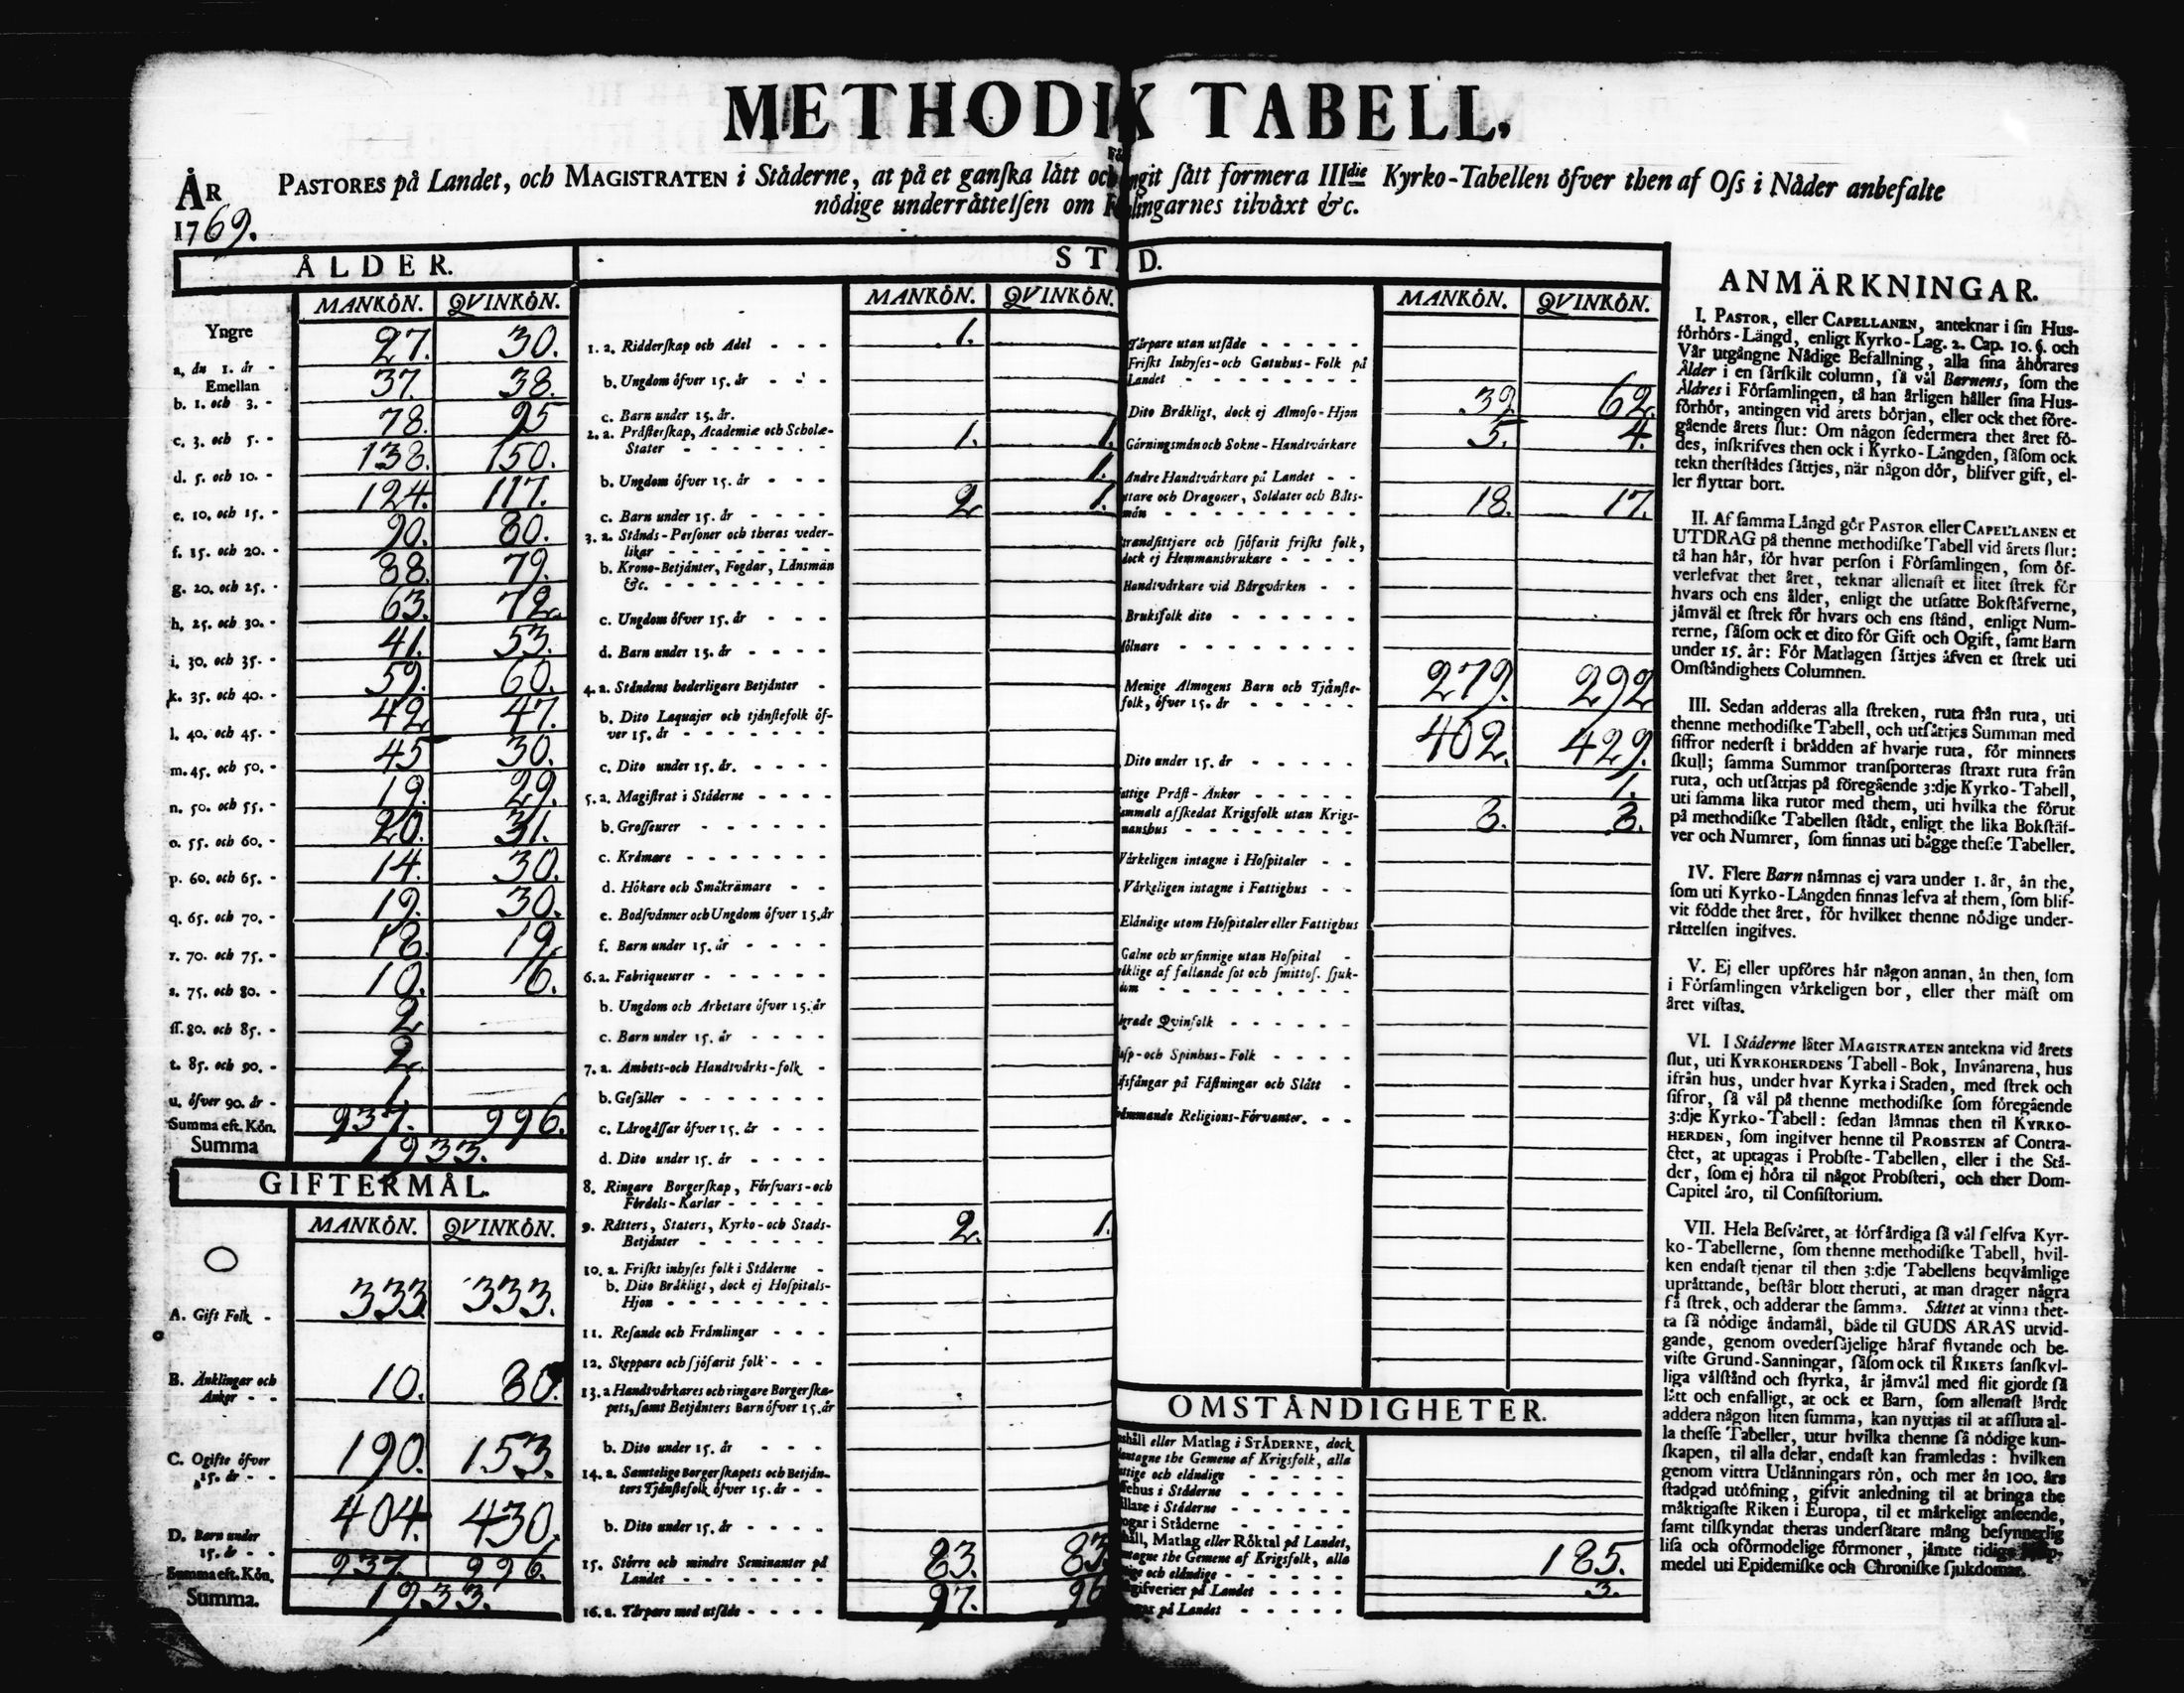 METHODIK TABELL,
ÅR
1769.
PASTORES på Landet, och MAGISTRATEN i Städerne, at på et ganſka lått och ngit ſått formera IIIdie Kyrko-Tabellen öfver then af Oſs i Nåder anbefalte
nödige underråttelſen om F lingarnes tilvåxt &c.
ÅLDER.
MANKÖN. QVINKÖN.
Yngre
a, ån 1. år - 27. 30.
Emellan
b. 1. och 3. - 37. 38.
c. 3. och 5. - 78. 95
d. 5. och 10. - 138. 150.
e. 10. och 15. - 124. 117.
f. 15. och 20. - 90. 80.
g. 20. och 25. - 88. 79.
h. 25. och 30. - 63. 72.
i. 30. och 35. - 41. 53.
k. 35. och 40. - 59. 60.
l. 40. och 45. - 42 47.
m. 45. och 50. - 45 30.
n. 50. och 55. - 19. 29.
o. 55. och 60. - 20. 31.
p. 60. och 65. - 14. 30.
q. 65. och 70. - 19. 30.
r. 70. och 75. - 18. 19.
s. 75. och 80. - 10. 6.
ſſ. 80. och 85. - 2
t. 85. och 90. - 2
u. öfver 90. år - 1.
Summa eft. Kön. 937. 996.
Summa 1933.
GIFTERMÅL.
MANKÖN. QVINKÖN.
A. Gift Folk - 333. 333.
B. Änklingar och
Änkor - - 10. 80.
C. Ogifte öfver
15. år - - 190. 153.
D. Barn under
15. år - - 404. 430.
Summa eft. Kön. 937. 996.
Summa. 1933.
ST D.
MANKÖN. QVINKÖN.
1. a. Ridderſkap och Adel - - - 1.
b. Ungdom öfver 15. år - - -
c. Barn under 15. år.
2. a. Pråſterſkap, Academiæ och Scholæ-
Stater - - - - - - - 1. 1.
b. Ungdom öfver 15. år - - - 1.
c. Barn under 15. år - - - - 2 1.
3. a. Stånds-Perſoner och theras veder-
likar - - - - - - - -
b. Krono-Betjånter, Fogdar, Lånsmån
&c. - - - - - - - -
c. Ungdom öfver 15. år - - -
d. Barn under 15. år - - - -
4. a. Ståndens hederligare Betjånter -
b. Dito Laquajer och tjånſtefolk öf-
ver 15. år - - - - - - -
c. Dito under 15. år. - - - -
5. a. Magiſtrat i Ståderne - - - -
b. Groſſeurer - - - - - -
c. Kråmare - - - - - - -
d. Hökare och Småkrämare - -
e. Bodſvånner och Ungdom öfver 15. år
f. Barn under 15. år - - - -
6. a. Fabriqueurer - - - - - -
b. Ungdom och Arbetare öfver 15. år
c. Barn under 15. år - - - -
7. a. Åmbets-och Handtvårks-folk -
b. Geſåller - - - - - - -
c. Lårogåſſar öfver 15. år - - -
d. Dito under 15. år - - - -
8. Ringare Borgerſkap, Förſvars-och
Fördels-Karlar - - - - -
9. Råtters, Staters, Kyrko-och Stads-
Betjånter - - - - - - 2. 1.
10. a. Friſkt inhyſes folk i Ståderne -
b. Dito Bråkligt, dock ej Hoſpitals-
Hjon - - - - - - - -
11. Reſande och Fråmlingar - - -
12. Skeppare och ſjöfarit folk - - -
13. a Handtvårkares och ringare Borgerſka-
pets, ſamt Betjånters Barn öfver 15. år
b. Dito under 15. år - - -
14. a. Samtelige Borgerſkapets och Betjån-
ters Tjånſtefolk öfver 15. år - -
b. Dito under 15. år - - - -
15. Större och mindre Seminanter på
Landet - - - - - - - 83. 83.
16. a. Tårpare med utſåde - - - - 97. 96
MANKÖN. QVINKÖN.
Tårpare utan utſåde - - - - -
Friſkt Inhyſes-och Gatuhus-Folk på
Landet - - - - - - - -
Dito Bråkligt, dock ej Almoſo-Hjon 39. 62.
Görningsmån och Sokne-Handtvårkare 5. 4.
Andre Handtvårkare på Landet - -
ttare och Dragoner, Soldater och Båts-
mån - - - - - - - - 18. 17.
trandſittjare och ſjöfarit friſkt folk,
dock ej Hemmansbrukare - - - -
Handtvårkare vid Bårgvårken - -
Bruksfolk dito - - - - - -
ölnare - - - - - - - -
Menige Almogens Barn och Tjånſte-
folk, öfver 15. år - - - - - 279. 292
Dito under 15. år - - - - - 402. 429.
attige Pråſt-Änkor - - - - - 1.
ammalt afſkedat Krigsfolk utan Krigs-
manshus - - - - - - - 3. 3.
Vårkeligen intagne i Hoſpitaler - -
Vårkeligen intagne i Fattighus - -
Elåndige utom Hoſpitaler eller Fattighus
Galne och urſinnige utan Hoſpital -
åklige af fallande ſot och ſmittoſ. ſjuk-
dom - - - - - - - -
grade Qvinfolk - - - - - -
aſp-och Spinhus-Folk - - - -
ifsfångar på Fåſtningar och Slått -
åmmande Religions-Förvanter. - -
OMSTÅNDIGHETER.
shåll eller Matlag i STÅDERNE, dock
antagne the Gemene af Krigsfolk, alla
attige och elåndige - - - - -
fehus i Ståderne - - - - -
ållare i Ståderne - - - - -
ogar i Ståderne - - - - -
håll, Matlag eller Röktal på Landet,
ntagne the Gemene af Krigsfolk, alla
ige och elåndige - - - - - - 185.
gifverier på Landet - - - - 3.
gar på Landet - - - - -
ANMÄRKNINGAR.
I. PASTOR, eller CAPELLANEN, anteknar i ſin Hus-
förhörs-Längd, enligt Kyrko-Lag. 2. Cap. 10. §. och
Vår utgångne Nådige Befallning, alla ſina åhörares
Ålder i en ſårſkilt column, ſå vål Barnens, ſom the
Åldres i Förſamlingen, tå han årligen håller ſina Hus-
förhör, antingen vid årets början, eller ock thet före-
gående årets ſlut: Om någon ſedermera thet året fö-
des, inſkrifves then ock i Kyrko-Långden, ſåſom ock
tekn therſtådes ſåttjes, när någon dör, blifver gift, el-
ler flyttar bort.
II. Af ſamma Långd gör PASTOR eller CAPELLANEN et
UTDRAG på thenne methodiſke Tabell vid årets ſlut:
tå han hår, för hvar perſon i Förſamlingen, ſom öf-
verlefvat thet året, teknar allenaſt et litet ſtrek för
hvars och ens ålder, enligt the utſatte Bokſtåfverne,
jåmvål et ſtrek för hvars och ens ſtånd, enligt Num-
rerne, ſåſom ock et dito för Gift och Ogift, ſamt Barn
under 15. år: För Matlagen ſåttjes åfven et ſtrek uti
Omſtåndighets Columnen.
III. Sedan adderas alla ſtreken, ruta från ruta, uti
thenne methodiſke Tabell, och utſåttjes Summan med
ſiffror nederſt i brådden af hvarje ruta, för minnets
ſkull; ſamma Summor tranſporteras ſtraxt ruta från
ruta, och utſåttjas på föregående 3:dje Kyrko-Tabell,
uti ſamma lika rutor med them, uti hvilka the förut
på methodiſke Tabellen ſtådt, enligt the lika Bokſtåf-
ver och Numrer, ſom finnas uti bågge theſſe Tabeller.
IV. Flere Barn nåmnas ej vara under 1. år, ån the,
ſom uti Kyrko-Långden finnas lefva af them, ſom blif-
vit födde thet året, för hvilket thenne nödige under-
råttelſen ingifves.
V. Ej eller upföres hår någon annan, ån then, ſom
i Förſamlingen vårkeligen bor, eller ther måſt om
året viſtas.
VI. I Ståderne låter MAGISTRATEN antekna vid årets
ſlut, uti KYRKOHERDENS Tabell-Bok, Invånarena, hus
ifrån hus, under hvar Kyrka i Staden, med ſtrek och
ſifror, ſå vål på thenne methodiſke ſom föregående
3:dje Kyrko-Tabell: ſedan låmnas then til KYRKO-
HERDEN, ſom ingifver henne til PROBSTEN af Contra-
ctet, at uptagas i Probſte-Tabellen, eller i the Stå-
der, ſom ej höra til något Probſteri, och ther Dom-
Capitel åro, til Conſiſtorium.
VII. Hela Beſvåret, at förfårdiga ſå vål ſelfva Kyr-
ko-Tabellerne, ſom thenne methodiſke Tabell, hvil-
ken endaſt tjenar til then 3:dje Tabellens beqvåmlige
upråttande, beſtår blott theruti, at man drager några
få ſtrek, och adderar the ſamma. Såttet at vinna thet-
ta ſå nödige åndamål, både til GUDS ÅRAS utvid-
gande, genom ovederſåjelige håraf flytande och be-
viſte Grund-Sanningar, ſåſom ock til RIKETS ſanſkyl-
liga vålſtånd och ſtyrka, år jåmvål med flit gjordt ſå
lått och enfalligt, at ock et Barn, ſom allenaſt lårdt
addera någon liten ſumma, kan nyttjas til at afſluta al-
la theſſe Tabeller, utur hvilka thenne ſå nödige kun-
ſkapen, til alla delar, endaſt kan framledas: hvilken
genom vittra Utlånningars rön, och mer ån 100. års
ſtadgad utöfning, gifvit anledning til at bringa the
måktigaſte Riken i Europa, til et mårkeligt anſeende,
ſamt tilſkyndat theras underſåtare mång beſynnerlig
liſa och oförmodelige förmoner, jåmte tidige
medel uti Epidemiſke och Chroniſke ſjukdomar.